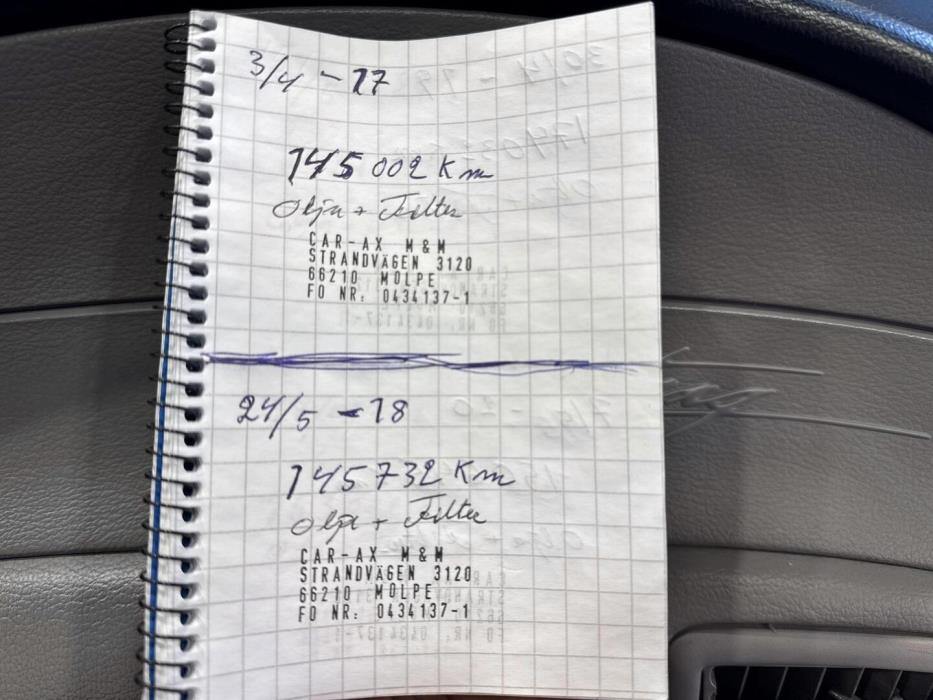 3/4 - 17
145 002 Km
Olja + Filter
CAR-AX M&M
STRANDVÄGEN 3120
66210 MOLPE
FO NR: 0434137-1
24/5 - 18
145 732 Km
Olja + Filter
CAR-AX M&M
STRANDVÄGEN 3120
66210 MOLPE
FO NR: 0434137-1